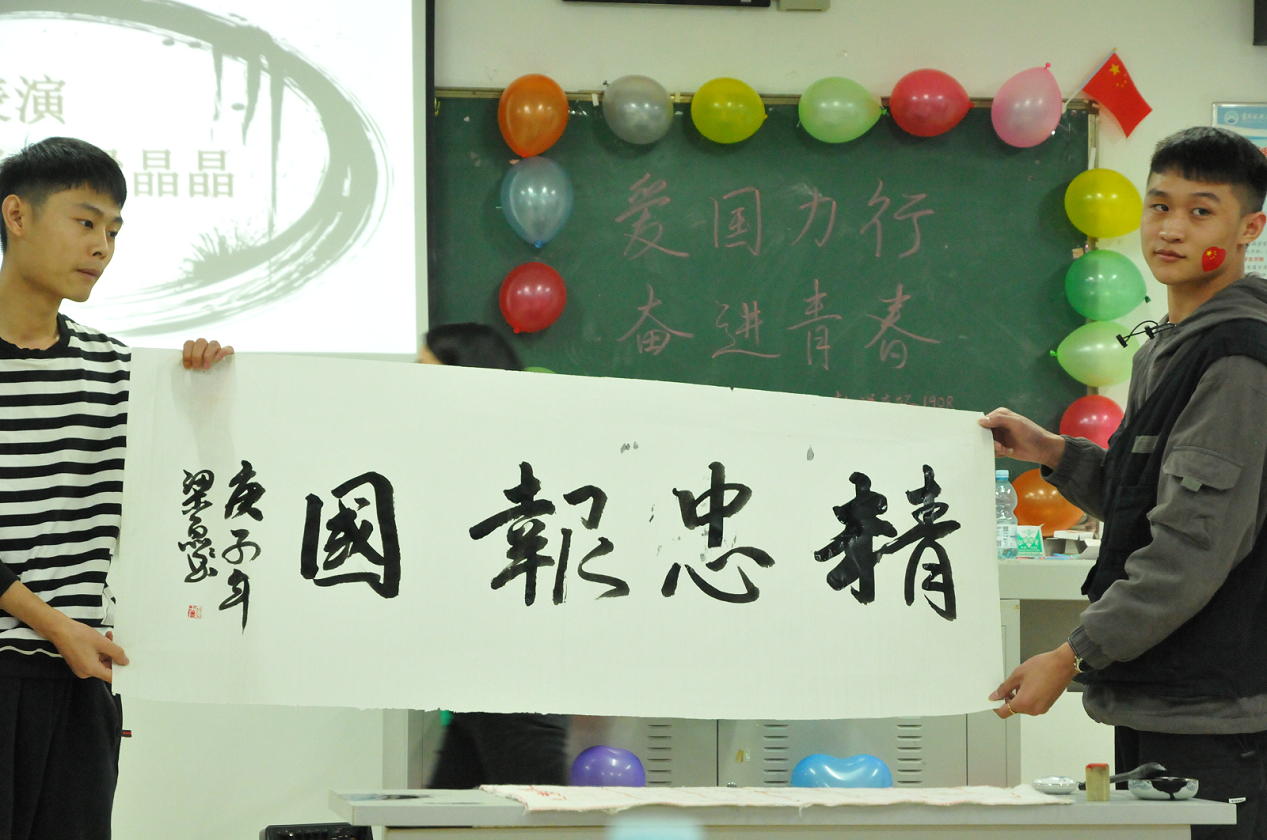 表演
晶晶
爱国力行
奋进青春
1908
精忠報國
庚子年